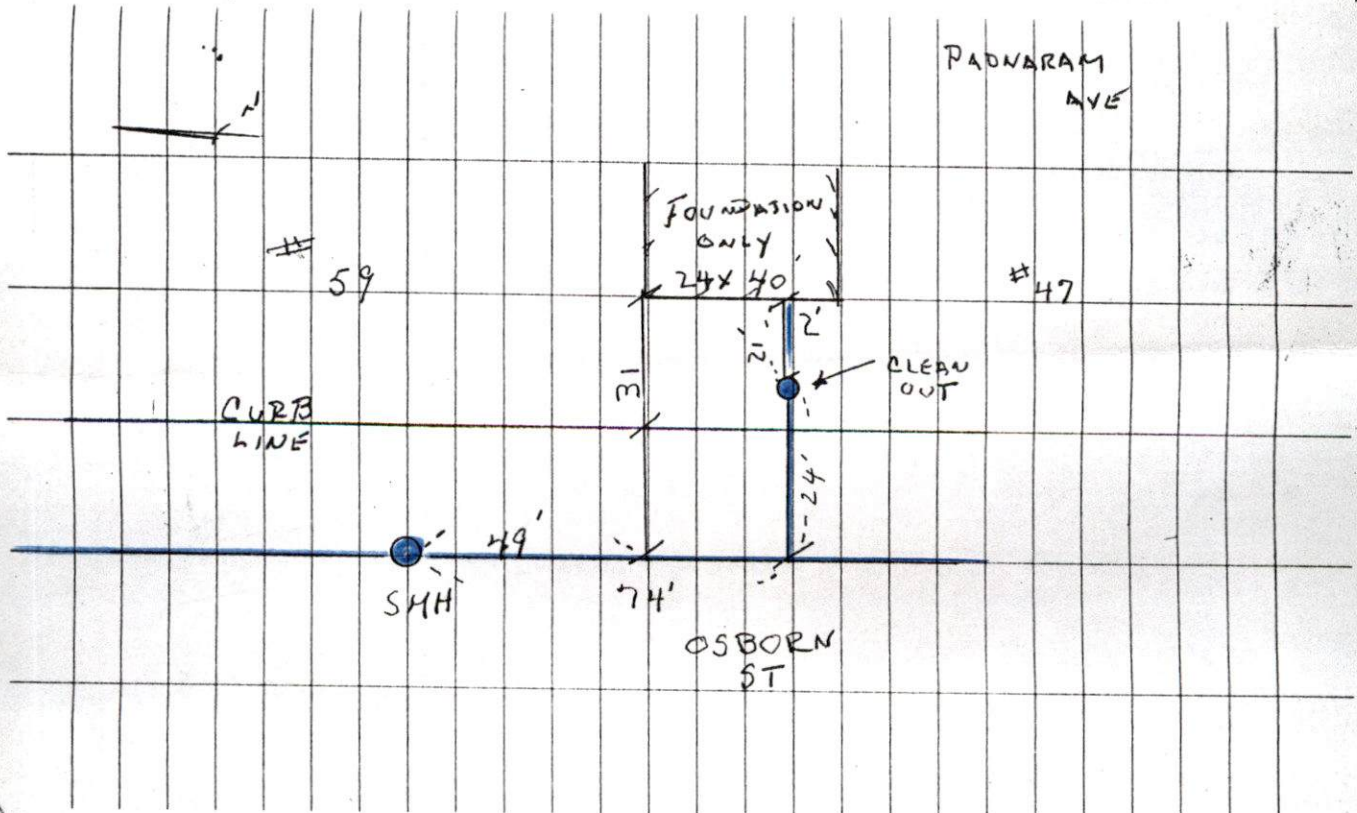 PADNARAM
AVE
FOUNDATION
ONLY
24 x 40'
# 59
# 47
2'
31
CLEAN
OUT
CURB
LINE
24'
49'
SMH
74'
OSBORN
ST